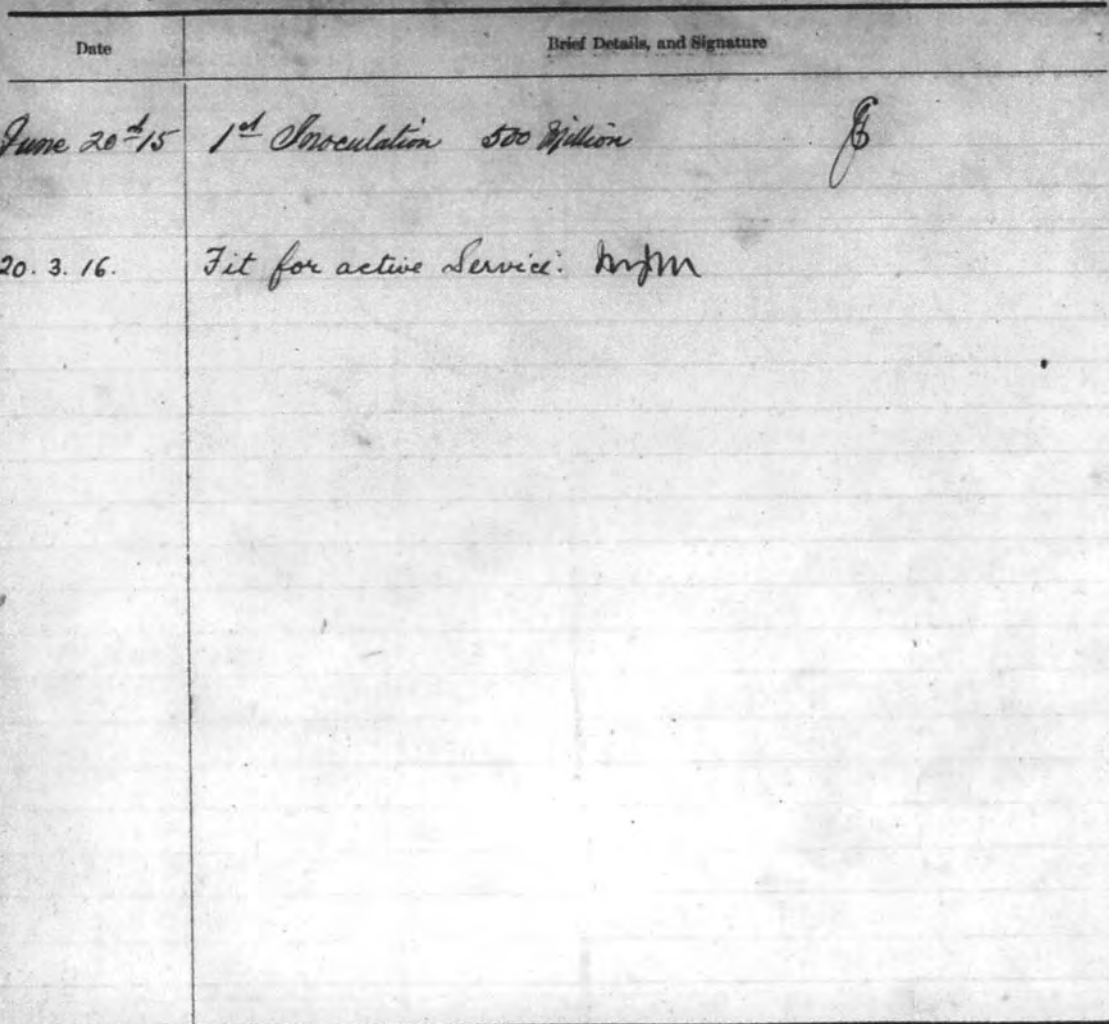 Date Brief Details, and Signature
June 20 15 1st Inoculation 500 Million
20. 3. 16. Fit for active Service.